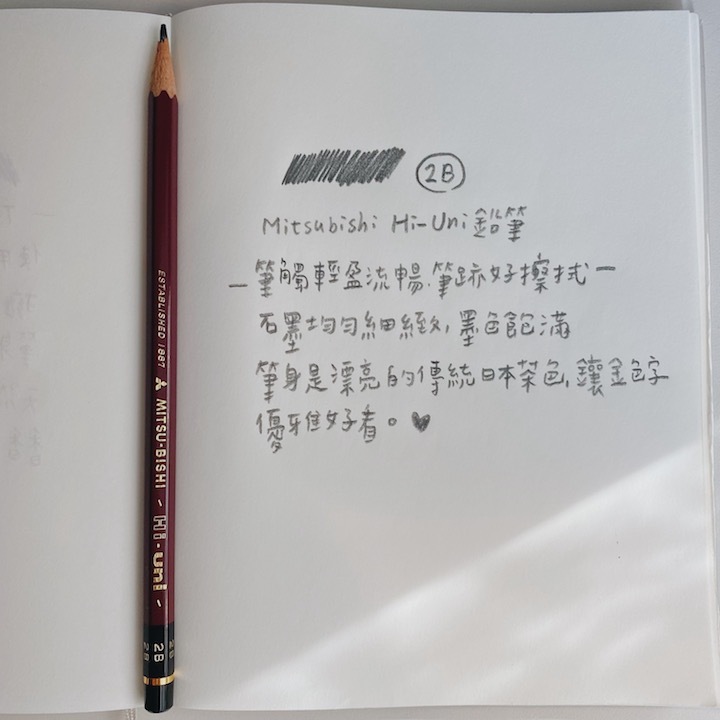 2B
Mitsubishi Hi-Uni 鉛筆
－筆觸輕盈流暢.筆跡好擦拭－
石墨均勻細緻,墨色飽滿
筆身是漂亮的傳統日本茶色,鑲金色字
優雅好看。♥
ESTABLISHED 1887 MITSU-BISHI ~ Hi-uni ~
2B
2B
2B